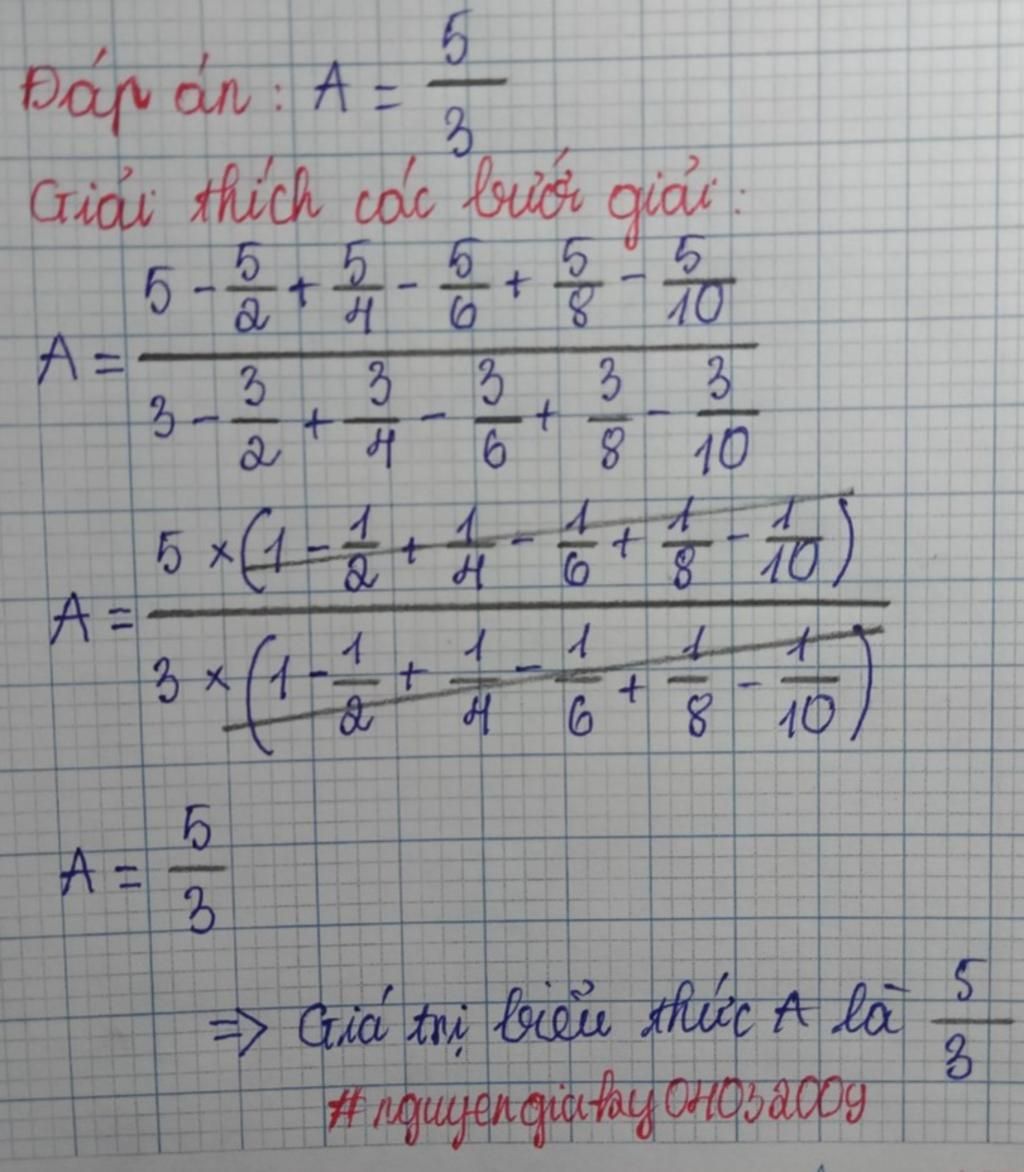 Đáp án: A = 5/3
Giải thích các bước giải:
A = (5 - 5/2 + 5/4 - 5/6 + 5/8 - 5/10) / (3 - 3/2 + 3/4 - 3/6 + 3/8 - 3/10)
A = 5 × (1 - 1/2 + 1/4 - 1/6 + 1/8 - 1/10) / 3 × (1 - 1/2 + 1/4 - 1/6 + 1/8 - 1/10)
A = 5/3
=> Giá trị biểu thức A là 5/3
#nguyengiahay04032009